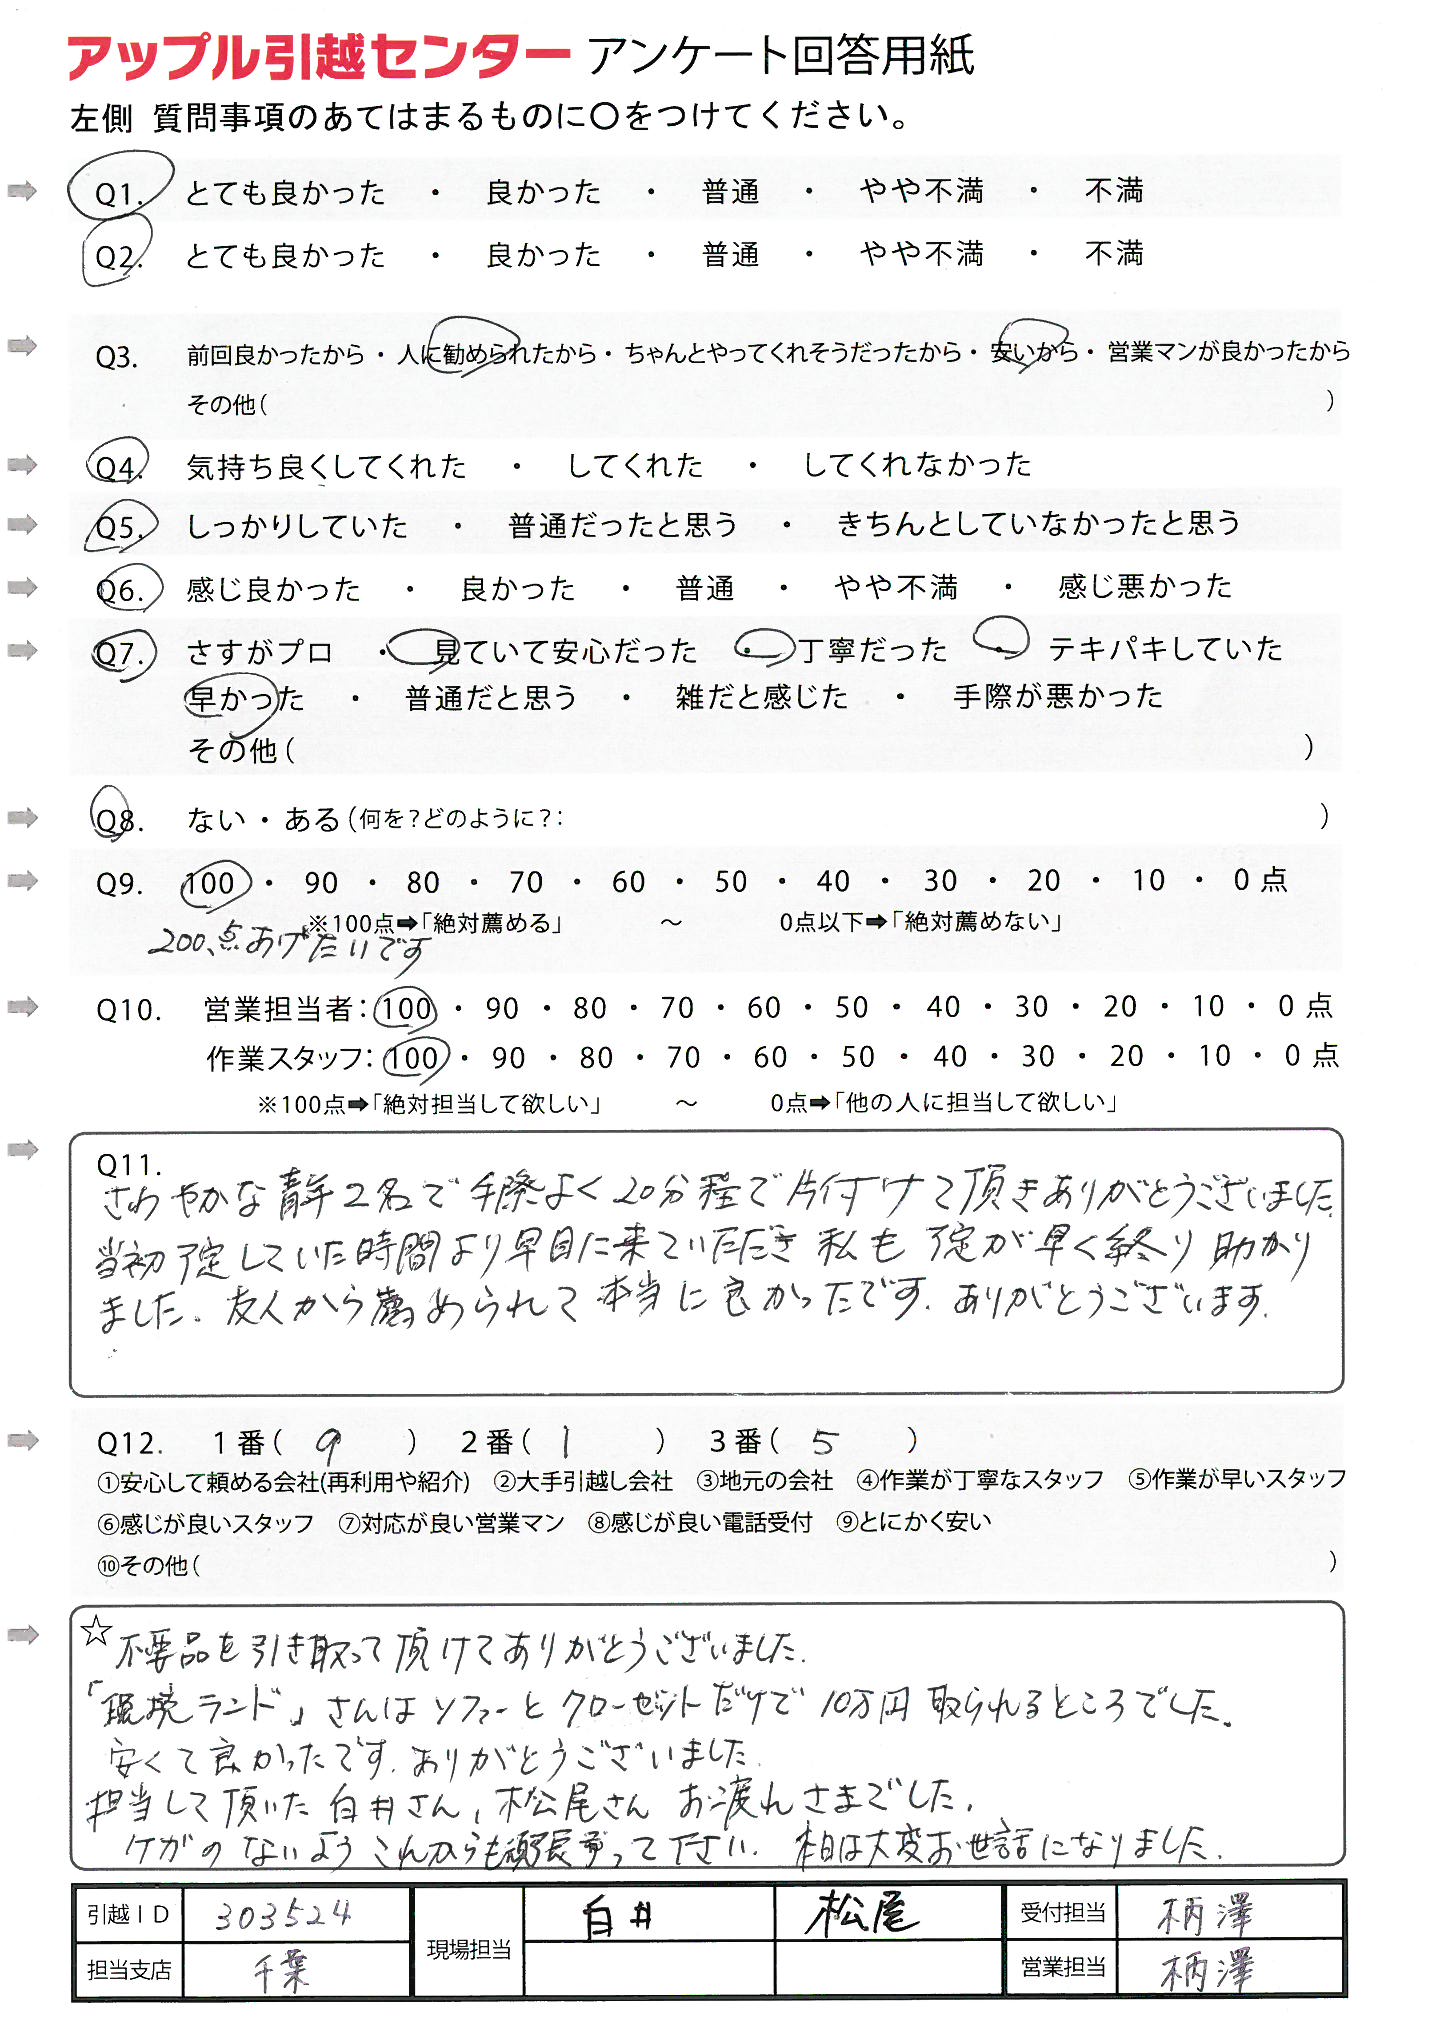 アップル引越センター アンケート回答用紙
左側 質問事項のあてはまるものに〇をつけてください。
Q1. とても良かった ・ 良かった ・ 普通 ・ やや不満 ・ 不満
Q2. とても良かった ・ 良かった ・ 普通 ・ やや不満 ・ 不満
Q3. 前回良かったから・ 人に勧められたから・ ちゃんとやってくれそうだったから・ 安いから・ 営業マンが良かったから
その他( )
Q4. 気持ち良くしてくれた ・ してくれた ・ してくれなかった
Q5. しっかりしていた ・ 普通だったと思う ・ きちんとしていなかったと思う
Q6. 感じ良かった ・ 良かった ・ 普通 ・ やや不満 ・ 感じ悪かった
Q7. さすがプロ ・ 見ていて安心だった ・ 丁寧だった ・ テキパキしていた
早かった ・ 普通だと思う ・ 雑だと感じた ・ 手際が悪かった
その他( )
Q8. ない・ある(何を?どのように?: )
Q9. 100 ・ 90 ・ 80 ・ 70 ・ 60 ・ 50 ・ 40 ・ 30 ・ 20 ・ 10 ・ 0点
※100点➡「絶対薦める」 ～ 0点以下➡「絶対薦めない」
200点あげたいです
Q10. 営業担当者: 100 ・ 90 ・ 80 ・ 70 ・ 60 ・ 50 ・ 40 ・ 30 ・ 20 ・ 10 ・ 0点
作業スタッフ: 100 ・ 90 ・ 80 ・ 70 ・ 60 ・ 50 ・ 40 ・ 30 ・ 20 ・ 10 ・ 0点
※100点➡「絶対担当して欲しい」 ～ 0点➡「他の人に担当して欲しい」
Q11.
さわやかな青年2名で手際よく20分程で片付けて頂きありがとうございました。
当初予定していた時間より早目に来ていただき私も予定が早く終り助かり
ました。友人から薦められて本当に良かったです。ありがとうございます。
Q12. 1番( 9 ) 2番( 1 ) 3番( 5 )
①安心して頼める会社(再利用や紹介) ②大手引越し会社 ③地元の会社 ④作業が丁寧なスタッフ ⑤作業が早いスタッフ
⑥感じが良いスタッフ ⑦対応が良い営業マン ⑧感じが良い電話受付 ⑨とにかく安い
⑩その他( )
☆不要品を引き取って頂けてありがとうございました。
「環境ランド」さんはソファーとクローゼットだけで10万円取られるところでした。
安くて良かったです。ありがとうございました。
担当して頂いた白井さん、松尾さんお疲れさまでした。
ケガのないようこれからも頑張って下さい。本日は大変お世話になりました。
引越ID 303524 現場担当 白井 松尾 受付担当 柄澤
担当支店 千葉 営業担当 柄澤